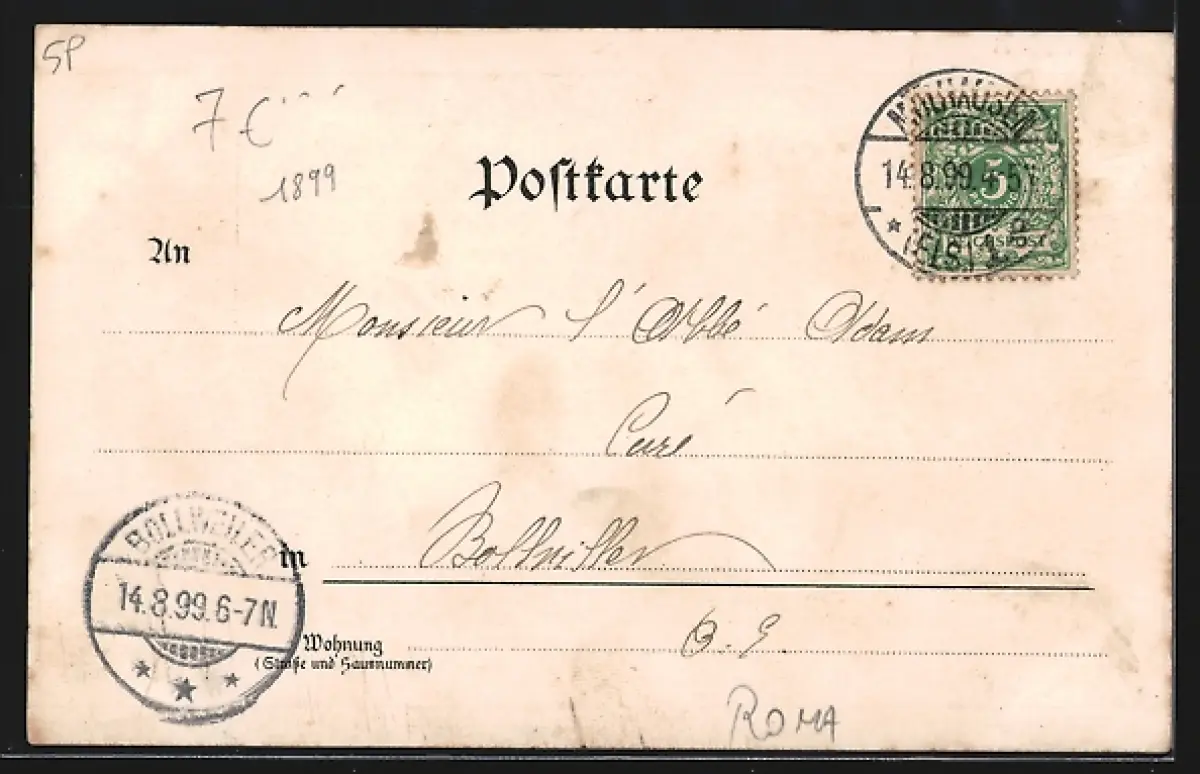 5P
7 €
1899
Postkarte
MÜLHAUSEN
14.8.99.4-5N.
* (ELS.) 1. *
5
REICHSPOST
An
Monsieur l'Abbé Adam
Curé
in Bollwiller
O. E.
BOLLWEILER
14.8.99.6-7N.
Wohnung
(Straße und Hausnummer)
ROMA